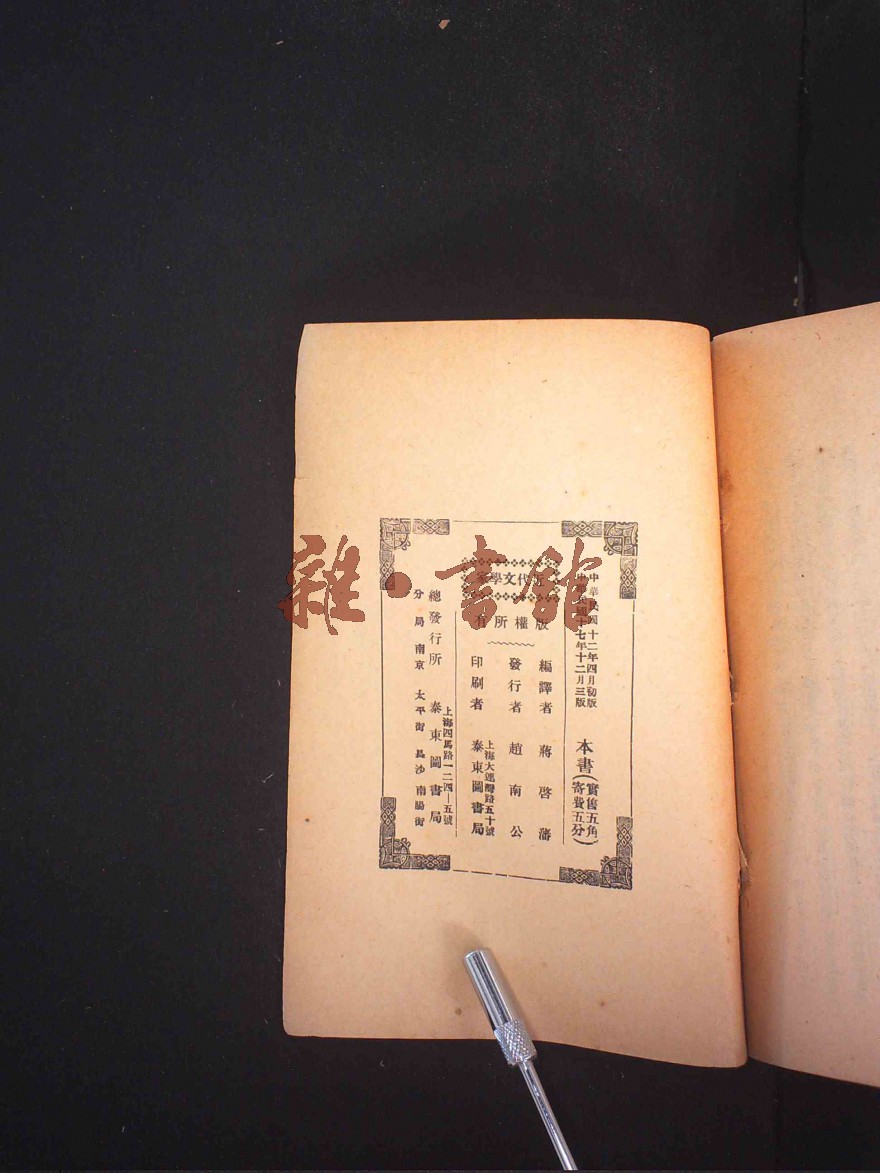 中華民國十二年四月初版
中華民國十七年十二月三版
本書（實售五角
寄費五分）
近代文學家
版權所有
編譯者 蔣啓藩
發行者 趙南公
印刷者 上海大連灣路五十號
泰東圖書局
總發行所 上海四馬路一二四—五號
泰東圖書局
分局 南京 太平街 長沙 南陽街
雜·書館